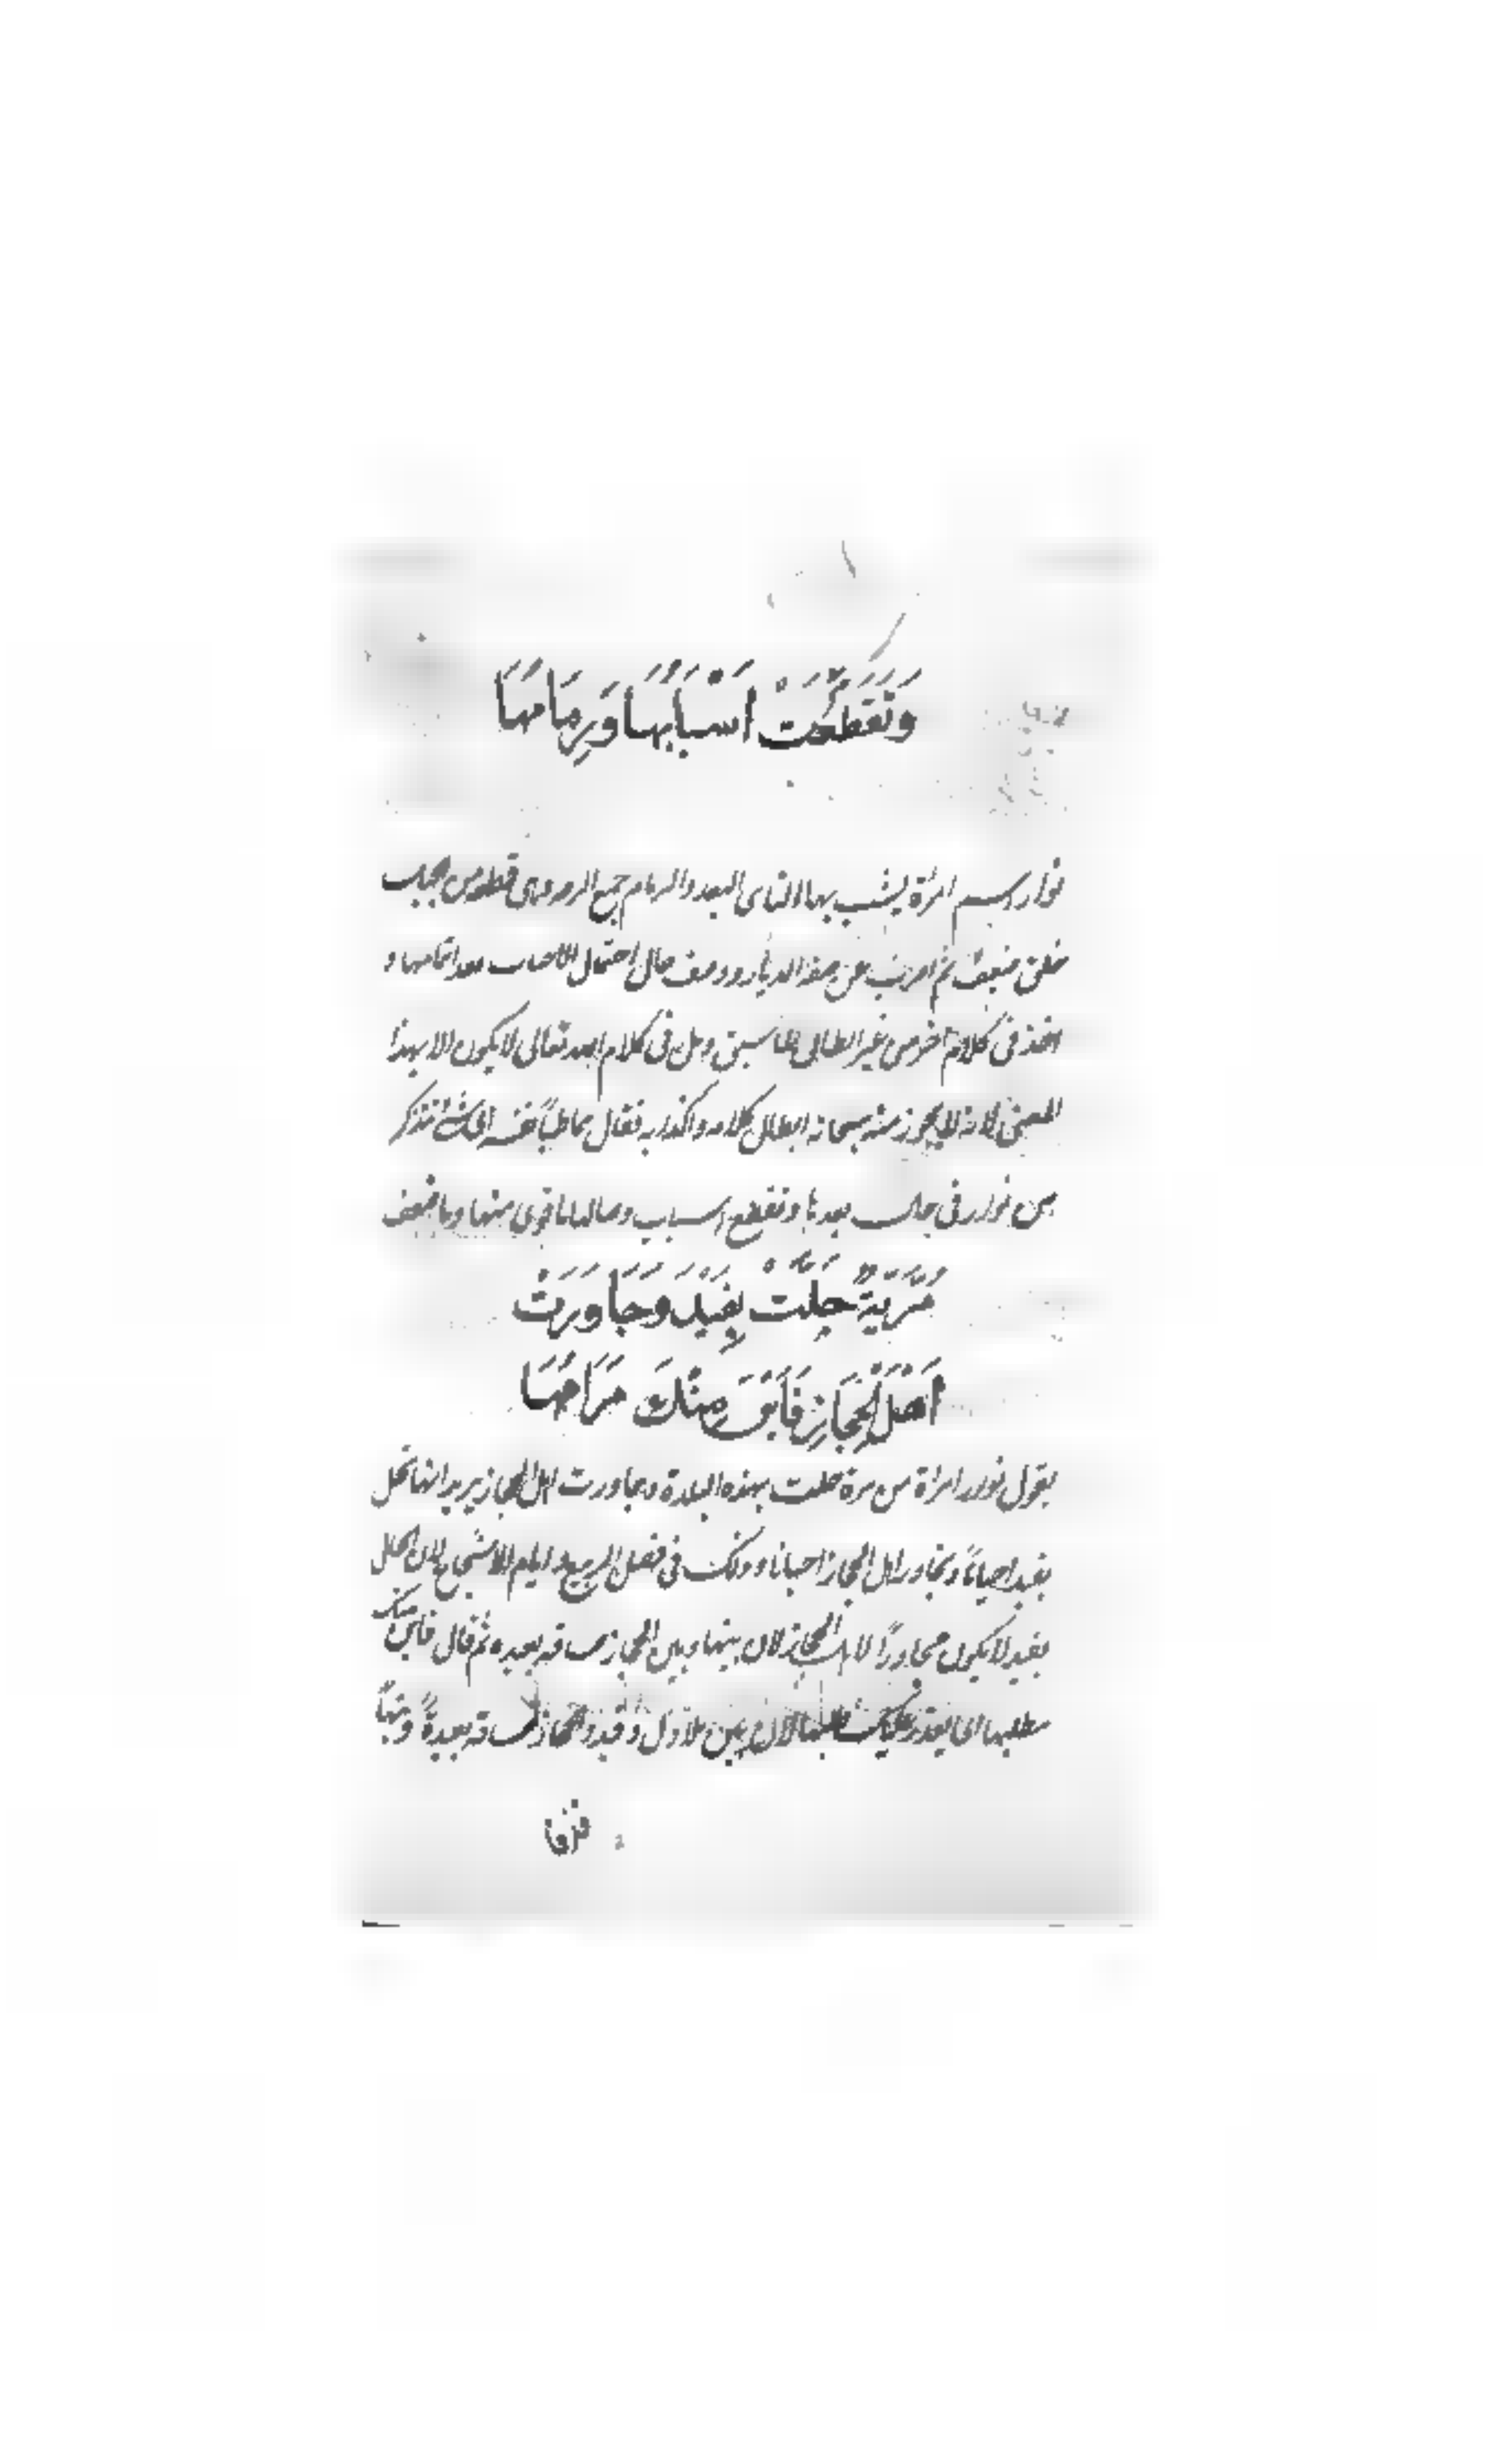 وَتَقَطَّعَتْ اَسْبَابُهَا وَرِمَامُهَا
نوار اسم امراة يشبب بها والناى البعد والرمام جمع الرمة وهى قطعة من الحبل
خلق ضعيف ثم اضرب عن صفة الديار ووصف حال احتمال الاحباب بعد اتمامها و
اخذ فى كلام اخر من غير ابطال لما سبق وبل فى كلام الله تعالى لا يكون الا بهذا
المعنى لانه لا يجوز منه سبحانه ابطال كلامه واكذابه فقال مخاطباً نفسه اى شئ تتذكر
من نوار فى حال بعدها وتقطع اسباب وصالها ما قوى منها وما ضعف
مُرِّيَّةٌ حَلَّتْ بِفَيْدَ وَجَاوَرَتْ
اَهْلَ الْحِجَازِ فَاَيْنَ مِنْكَ مَرَامُهَا
يقول نوار امراة من مرة حلت بهذه البلدة وجاورت اهل الحجاز يريد انها تحل
بفيد احياناً وتجاور اهل الحجاز احيانا وذلك فى فصل الربيع وايام الانتجاع لان الحال
بفيد لا يكون مجاوراً لاهل الحجاز لان بينها وبين الحجاز مسافة بعيدة ثم قال فاين منك
مطلبها اى يعتذر عليك طلبها لان بين بلادك وفيد والحجاز مسافة بعيدةً وتيهاً